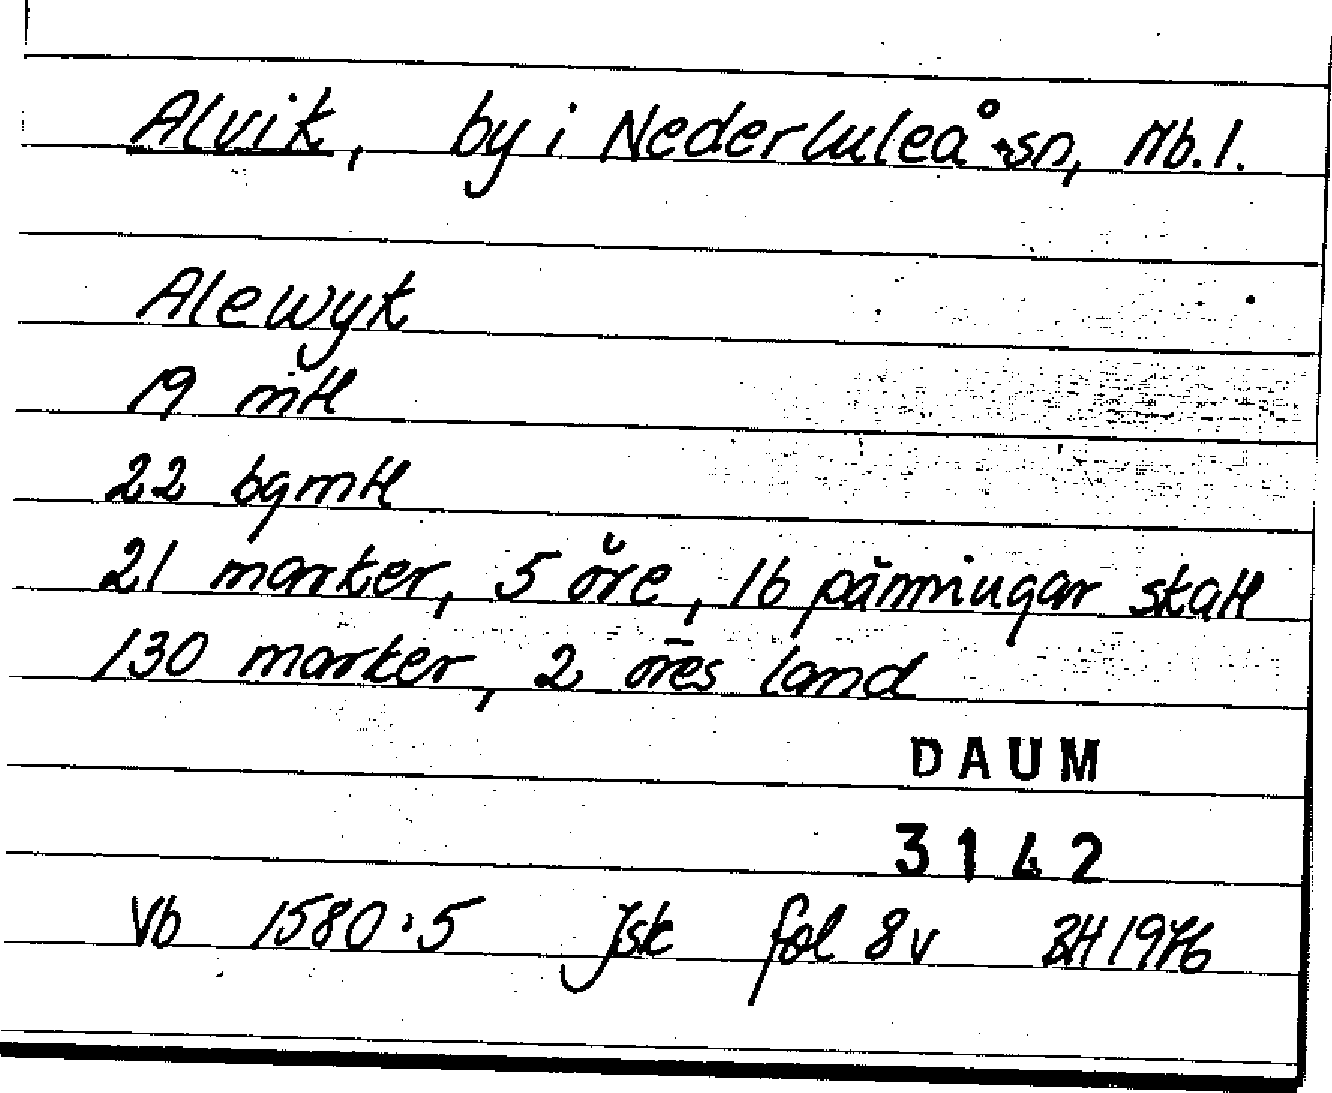 Alvik, by i Nederluleå sn, Nb. l.
Alewyk
19 mtl
22 bgmtl
21 marker, 5 öre, 16 pänningar skatt
130 marker, 2 öres land
DAUM
3142
Vb 1580:5 Jsk fol 8v BH 1976